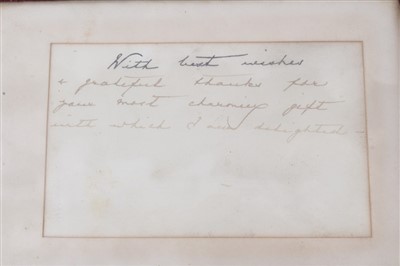 With best wishes
& grateful thanks for
your most charming gift
with which I am delighted –